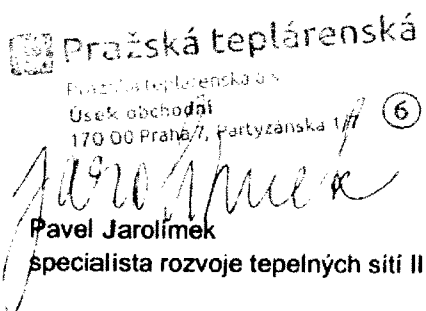 Pražská teplárenská
Pražská teplárenská a.s.
Úsek obchodní
170 00 Praha 7, Partyzánska 1/7 6
Jarolímek
Pavel Jarolímek
specialista rozvoje tepelných sítí II